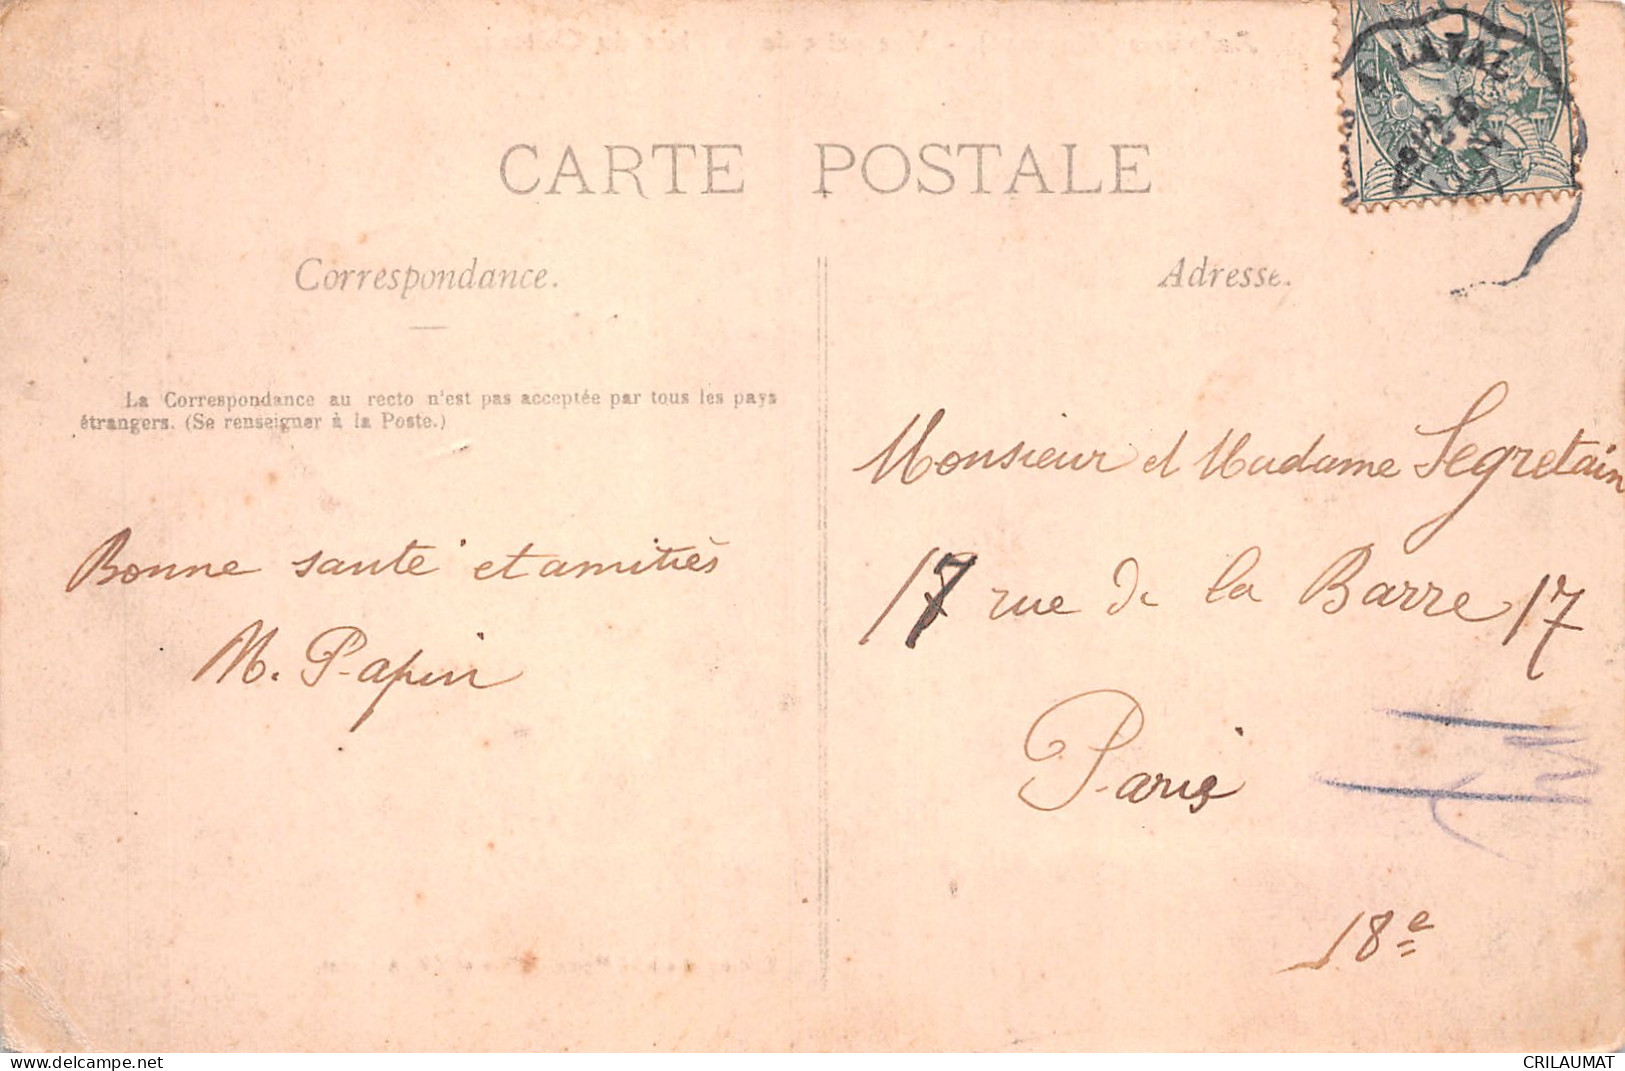 CARTE POSTALE
LAVAL
Correspondance.
Adresse.
La Correspondance au recto n'est pas acceptée par tous les pays
étrangers. (Se renseigner à la Poste.)
Bonne santé et amitiés
M. Papin
Monsieur et Madame Segretain
17 rue de la Barre 17
Paris
18e
www.delcampe.net
CRILAUMAT